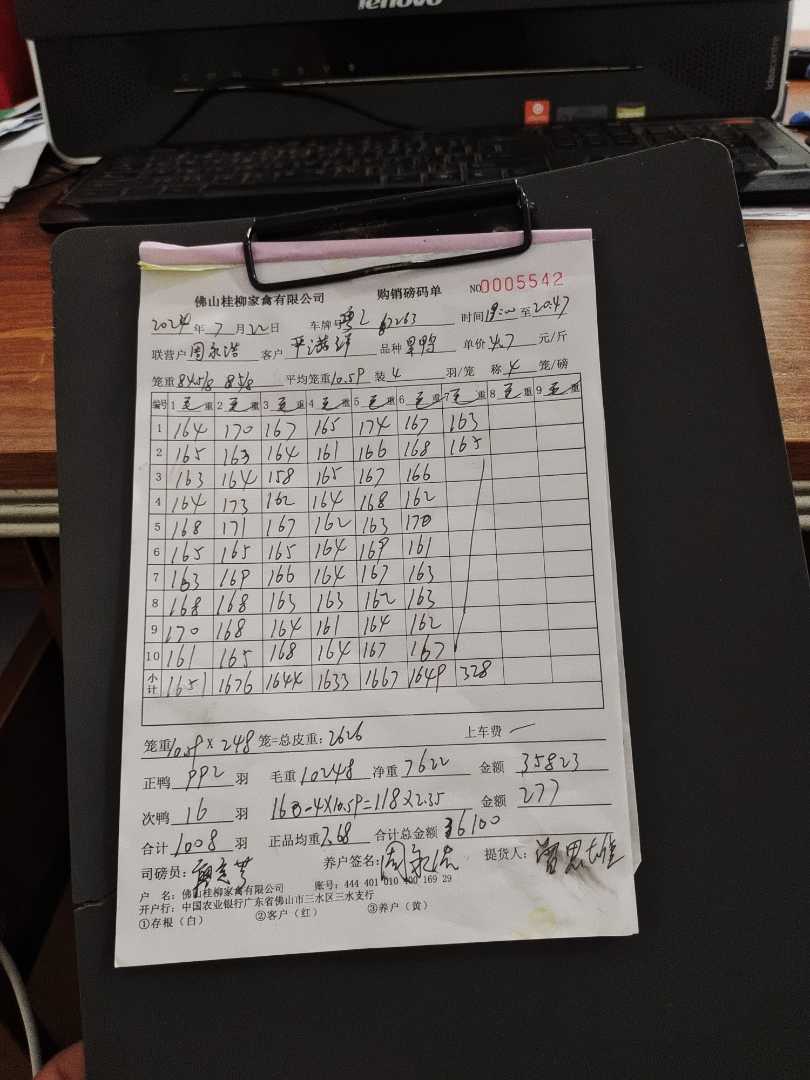 lenovo
ideacentre
佛山桂柳家禽有限公司 购销磅码单 NO 0005542
2024年7月22日 车牌号 粤L 62263 时间 19:00 至 20:47
联营户 周永浩 客户 品种 单价 4.7 元/斤
笼重 845/8 85/8 平均笼重 10.59 装 4 羽/笼 称 4 笼/磅
编号 1 毛重 2 毛重 3 毛重 4 毛重 5 毛重 6 毛重 7 毛重 8 毛重 9 毛重
1 164 170 167 165 174 167 163
2 165 163 164 161 166 168 165
3 163 164 158 165 167 166
4 164 173 162 164 168 162
5 168 171 167 162 163 170
6 165 165 165 164 169 161
7 163 169 166 164 167 163
8 168 168 163 163 162 163
9 170 168 164 161 164 162
10 161 165 168 164 167 167
小计 1651 1676 1644 1633 1667 1649 328
笼重 10.59 × 248 笼=总皮重: 2626 上车费 一
正鸭 992 羽 毛重 10248 净重 7622 金额 35823
次鸭 16 羽 160-4×10.59=118×2.35 金额 277
合计 1008 羽 正品均重 7.68 合计总金额 36100
司磅员: 养户签名: 周永浩 提货人:
户 名: 佛山桂柳家禽有限公司 账号: 444 401 010 400 169 29
开户行: 中国农业银行广东省佛山市三水区三水支行
①存根(白) ②客户(红) ③养户(黄)